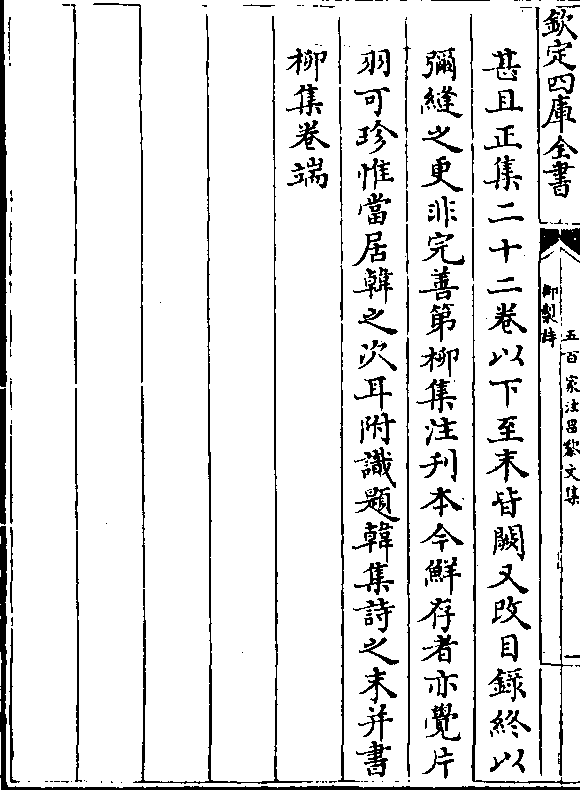 欽定四庫全書
御製詩
五百家注昌黎文集
甚且正集二十二卷以下至末皆闕又改目錄終以
彌縫之更非完善第柳集注刋本今鮮存者亦覺片
羽可珍惟當居韓之次耳附識題韓集詩之末并書
柳集卷端